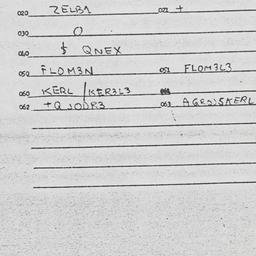 020 ZELBA 021 +
030 O
040 $ QNEX
050 FLOM3N 051 FLOM3L3
060 KERL/KER3L3
062 +QJODR3 063